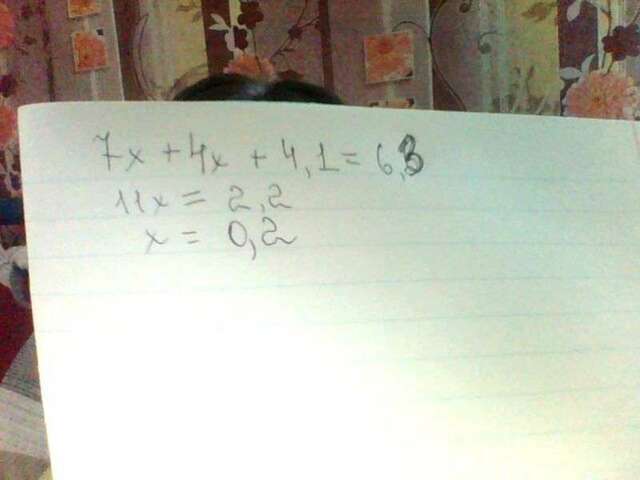 7x + 4x + 4,1 = 6,3
11x = 2,2
x = 0,2